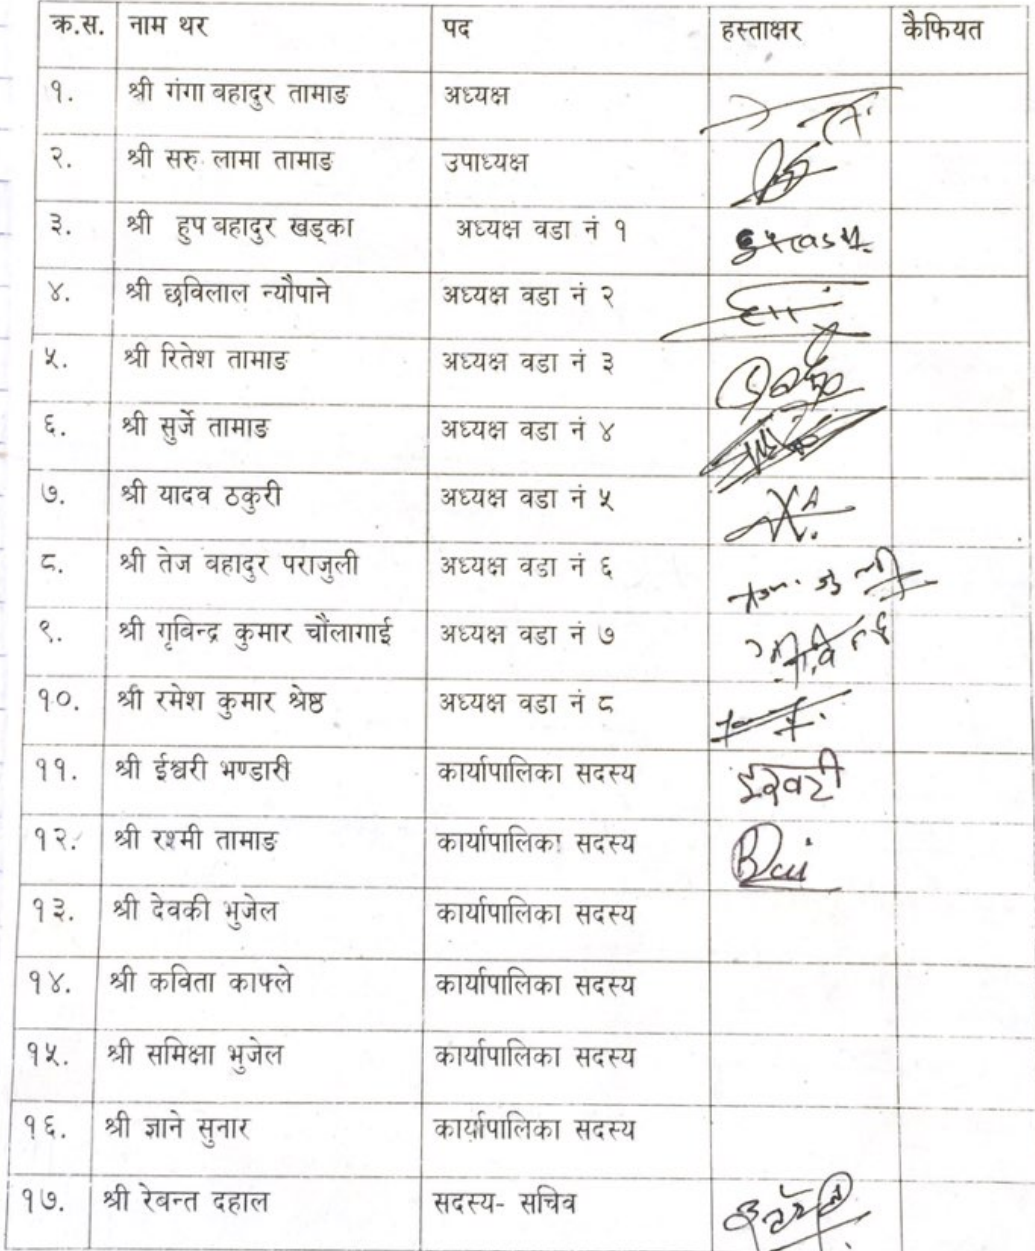 क्र.स. नाम थर पद हस्ताक्षर कैफियत
१. श्री गंगा बहादुर तामाङ अध्यक्ष
२. श्री सरु लामा तामाङ उपाध्यक्ष
३. श्री हुप बहादुर खड्का अध्यक्ष वडा नं १
४. श्री छविलाल न्यौपाने अध्यक्ष वडा नं २
५. श्री रितेश तामाङ अध्यक्ष वडा नं ३
६. श्री सुर्जे तामाङ अध्यक्ष वडा नं ४
७. श्री यादव ठकुरी अध्यक्ष वडा नं ५
८. श्री तेज वहादुर पराजुली अध्यक्ष वडा नं ६
९. श्री गृबिन्द्र कुमार चौंलागाई अध्यक्ष वडा नं ७
१०. श्री रमेश कुमार श्रेष्ठ अध्यक्ष वडा नं ८
११. श्री ईश्वरी भण्डारी कार्यापालिका सदस्य ईश्वरी
१२. श्री रश्मी तामाङ कार्यापालिका सदस्य
१३. श्री देवकी भुजेल कार्यापालिका सदस्य
१४. श्री कविता काफ्ले कार्यापालिका सदस्य
१५. श्री समिक्षा भुजेल कार्यापालिका सदस्य
१६. श्री ज्ञाने सुनार कार्यापालिका सदस्य
१७. श्री रेवन्त दहाल सदस्य- सचिव